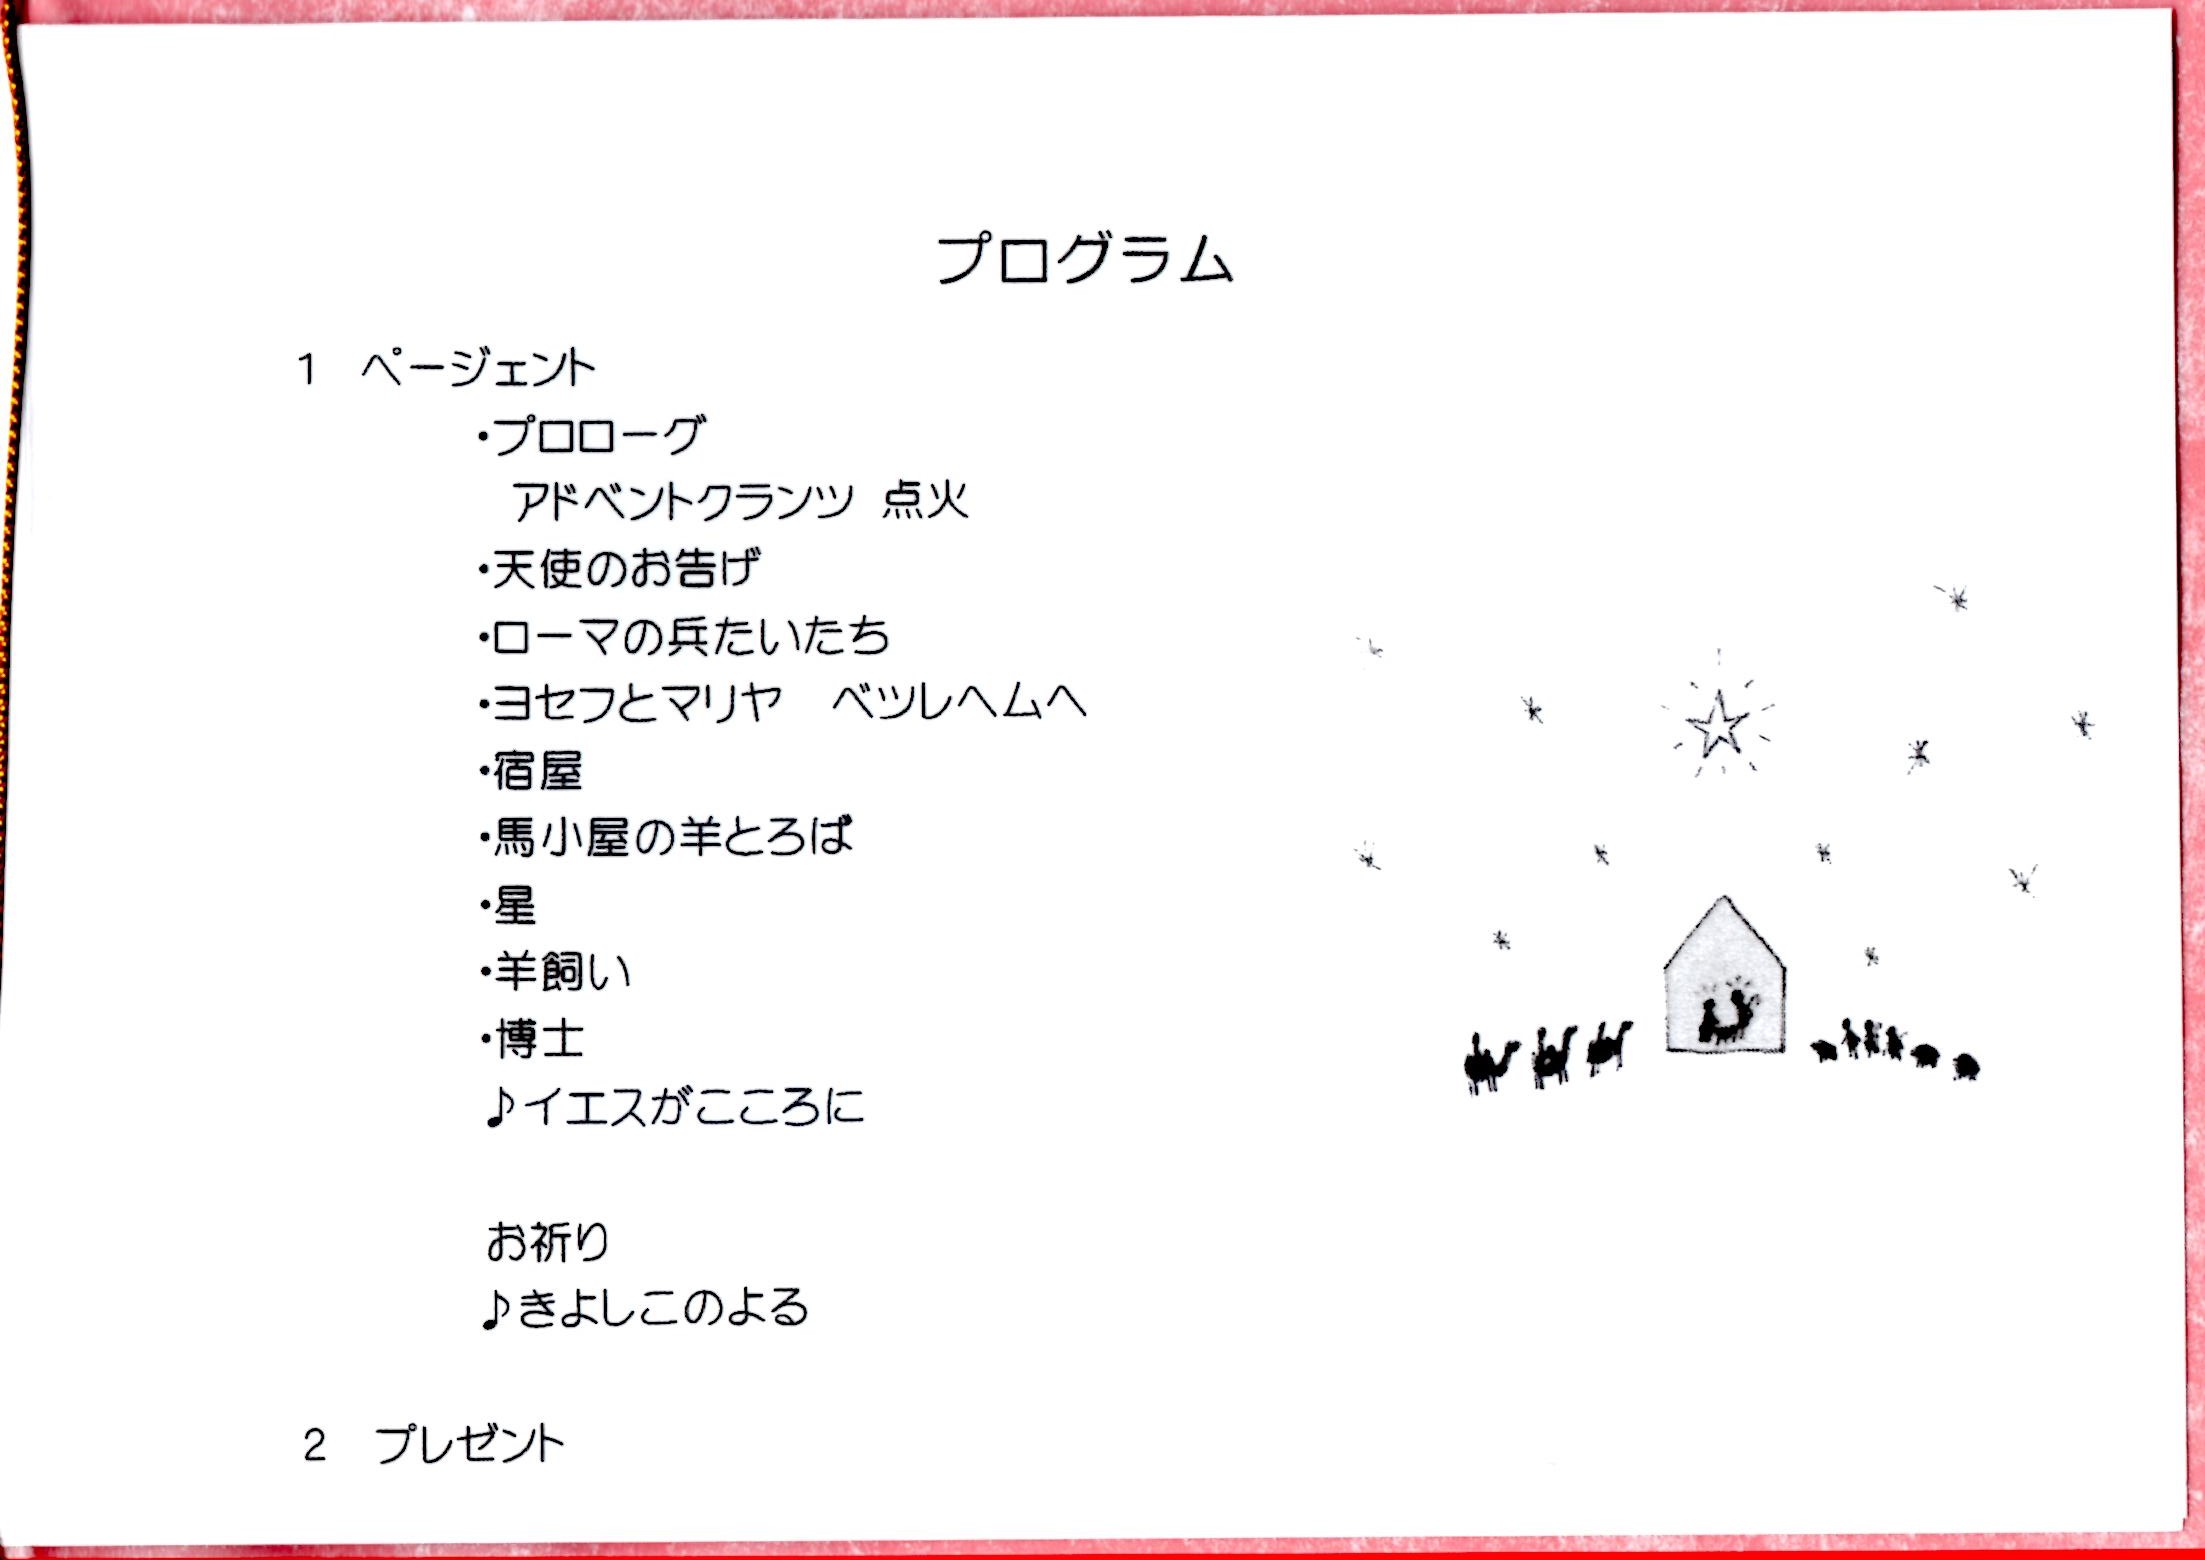 プログラム
1 ページェント
・プロローグ
アドベントクランツ 点火
・天使のお告げ
・ローマの兵たいたち
・ヨセフとマリヤ　ベツレヘムへ
・宿屋
・馬小屋の羊とろば
・星
・羊飼い
・博士
♪イエスがこころに
お祈り
♪きよしこのよる
2 プレゼント